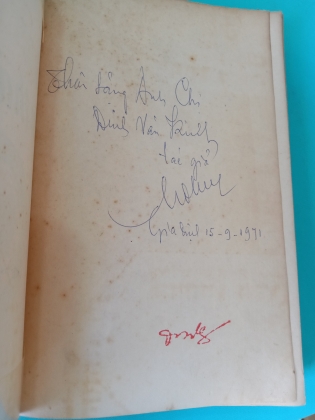 Thân tặng Anh Chị
Đinh Văn Kinh
tác giả
Gia Định 15-9-1971